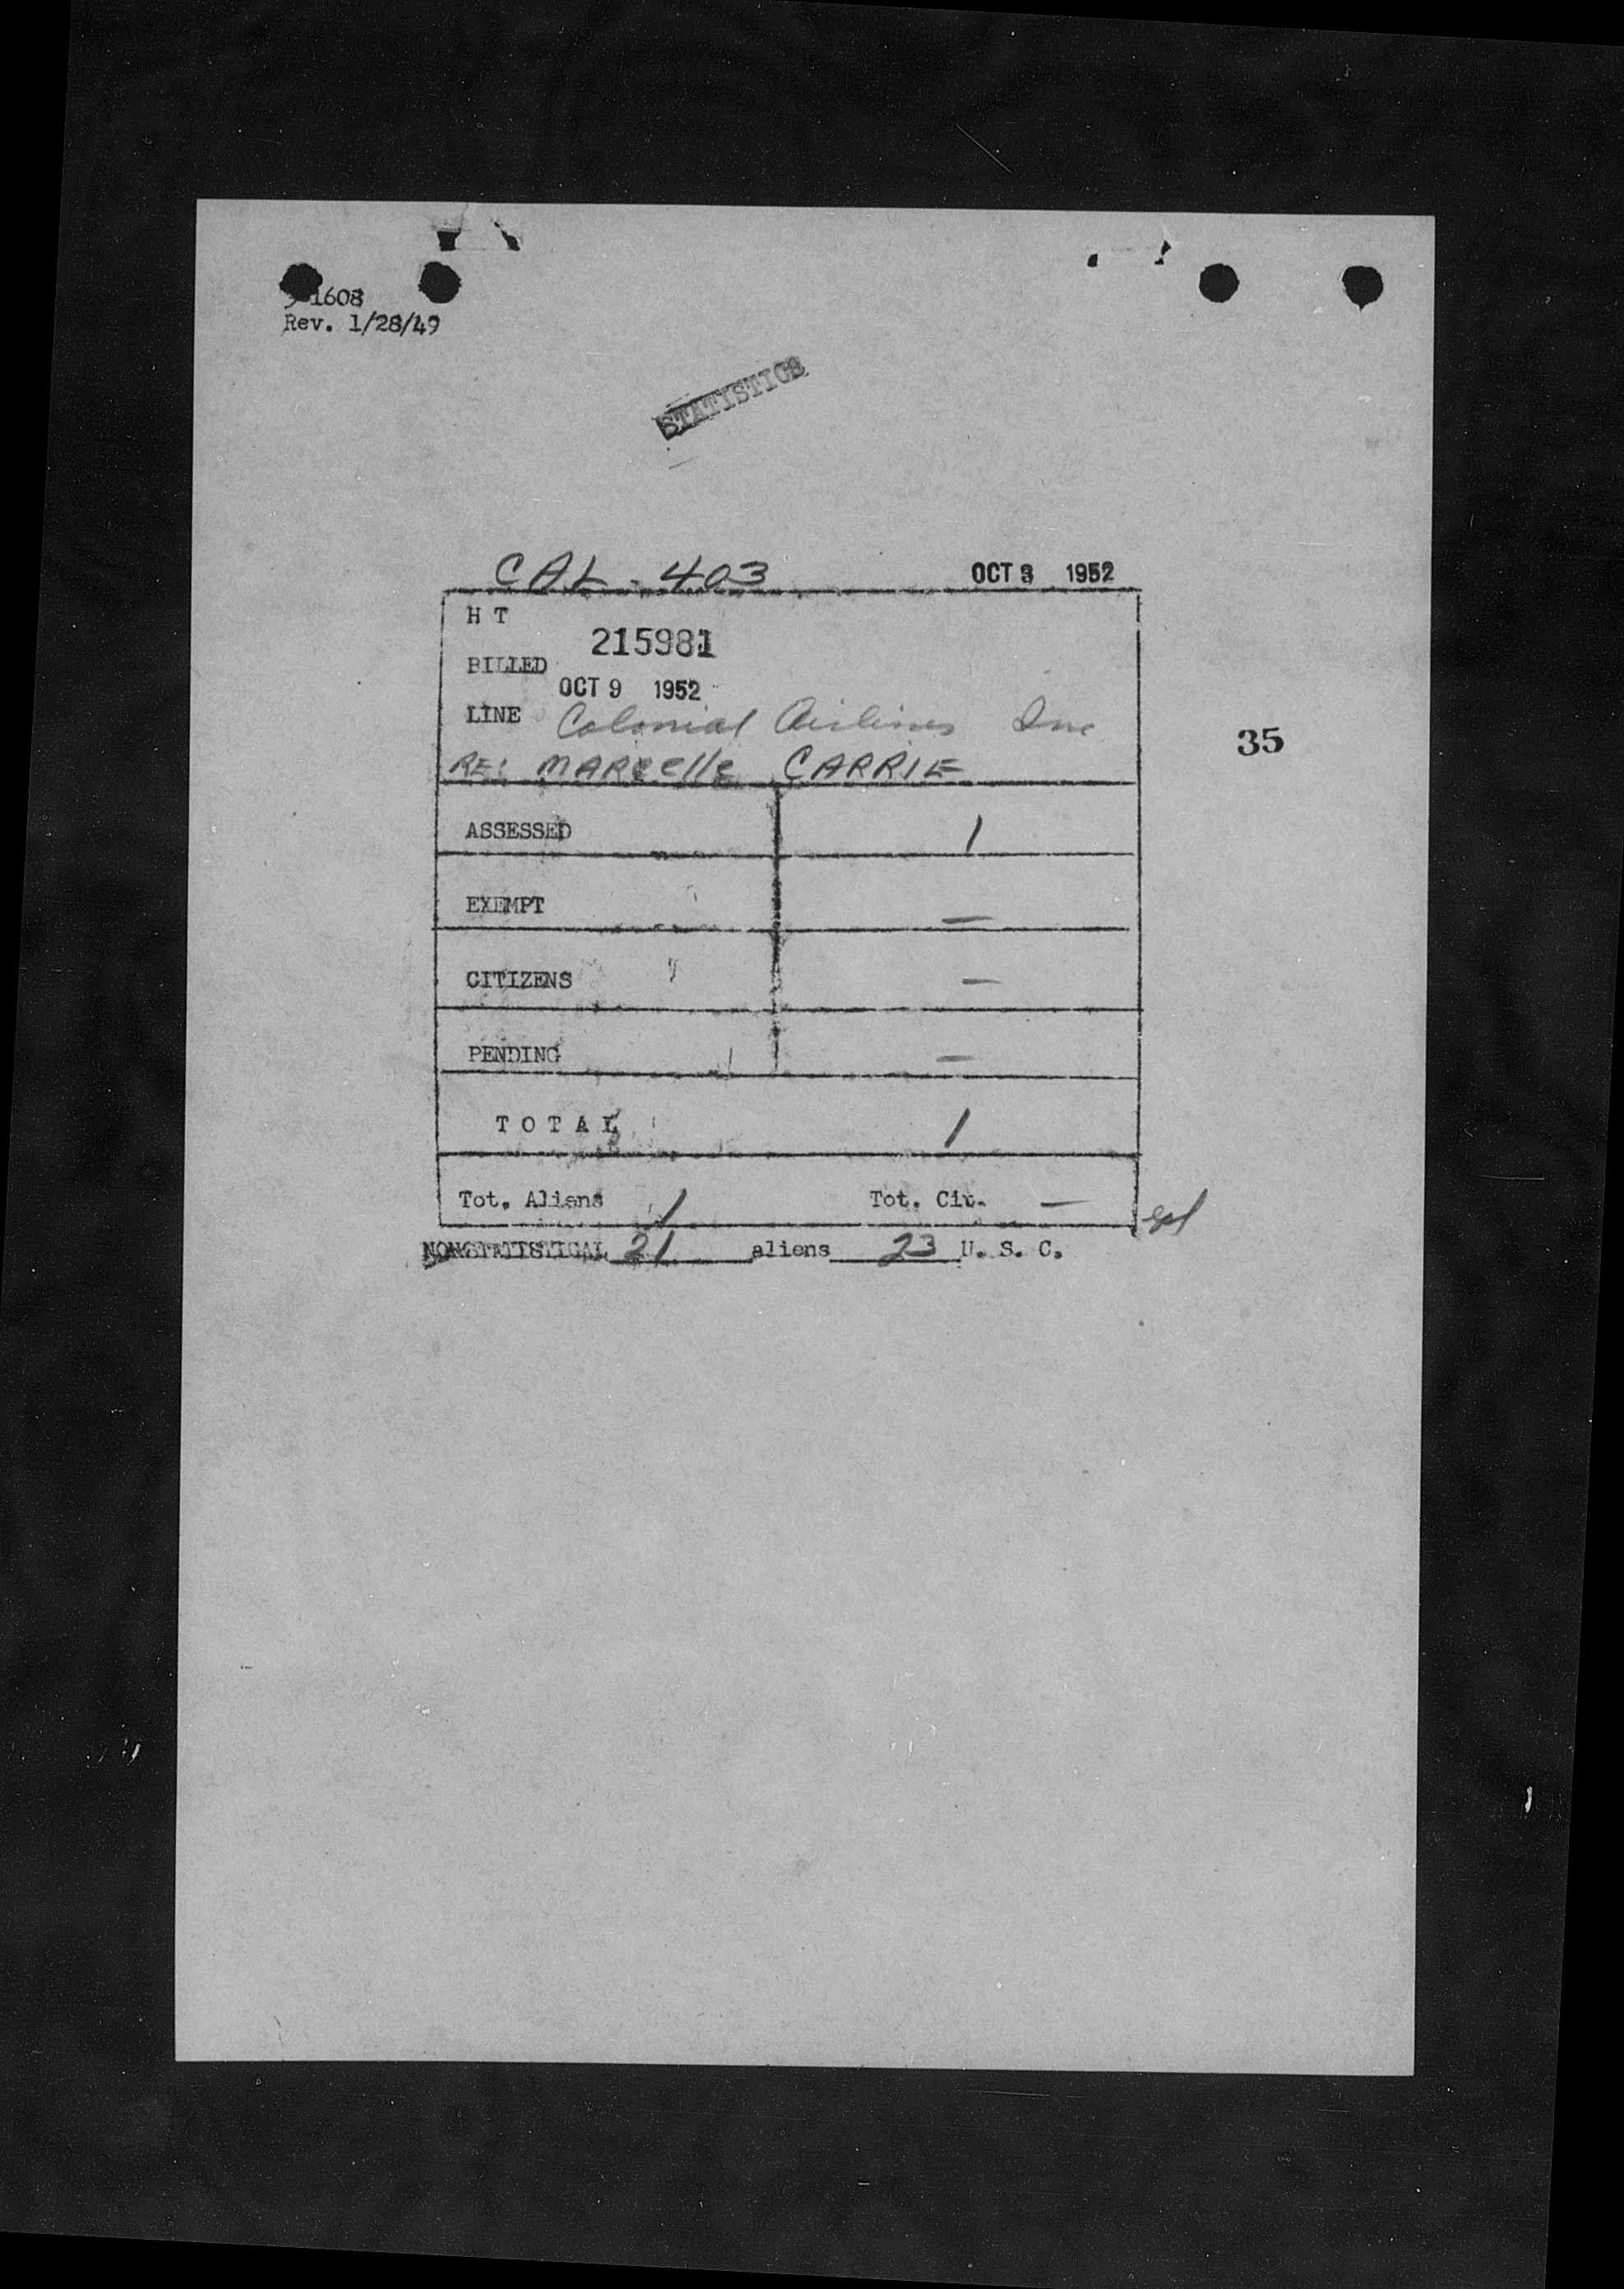 1608
Rev. 1/28/49
STATISTICS
CAL - 403 OCT 3 1952
H T
215981
BILLED
OCT 9 1952
LINE Colonial Airlines Inc
35
RE: MARCElle CARRIE
ASSESSED 1
EXEMPT —
CITIZENS —
PENDING —
T O T A L 1
Tot. Aliens 1 Tot. Cit. —
NONSTATISTICAL 21 aliens 23 U. S. C.